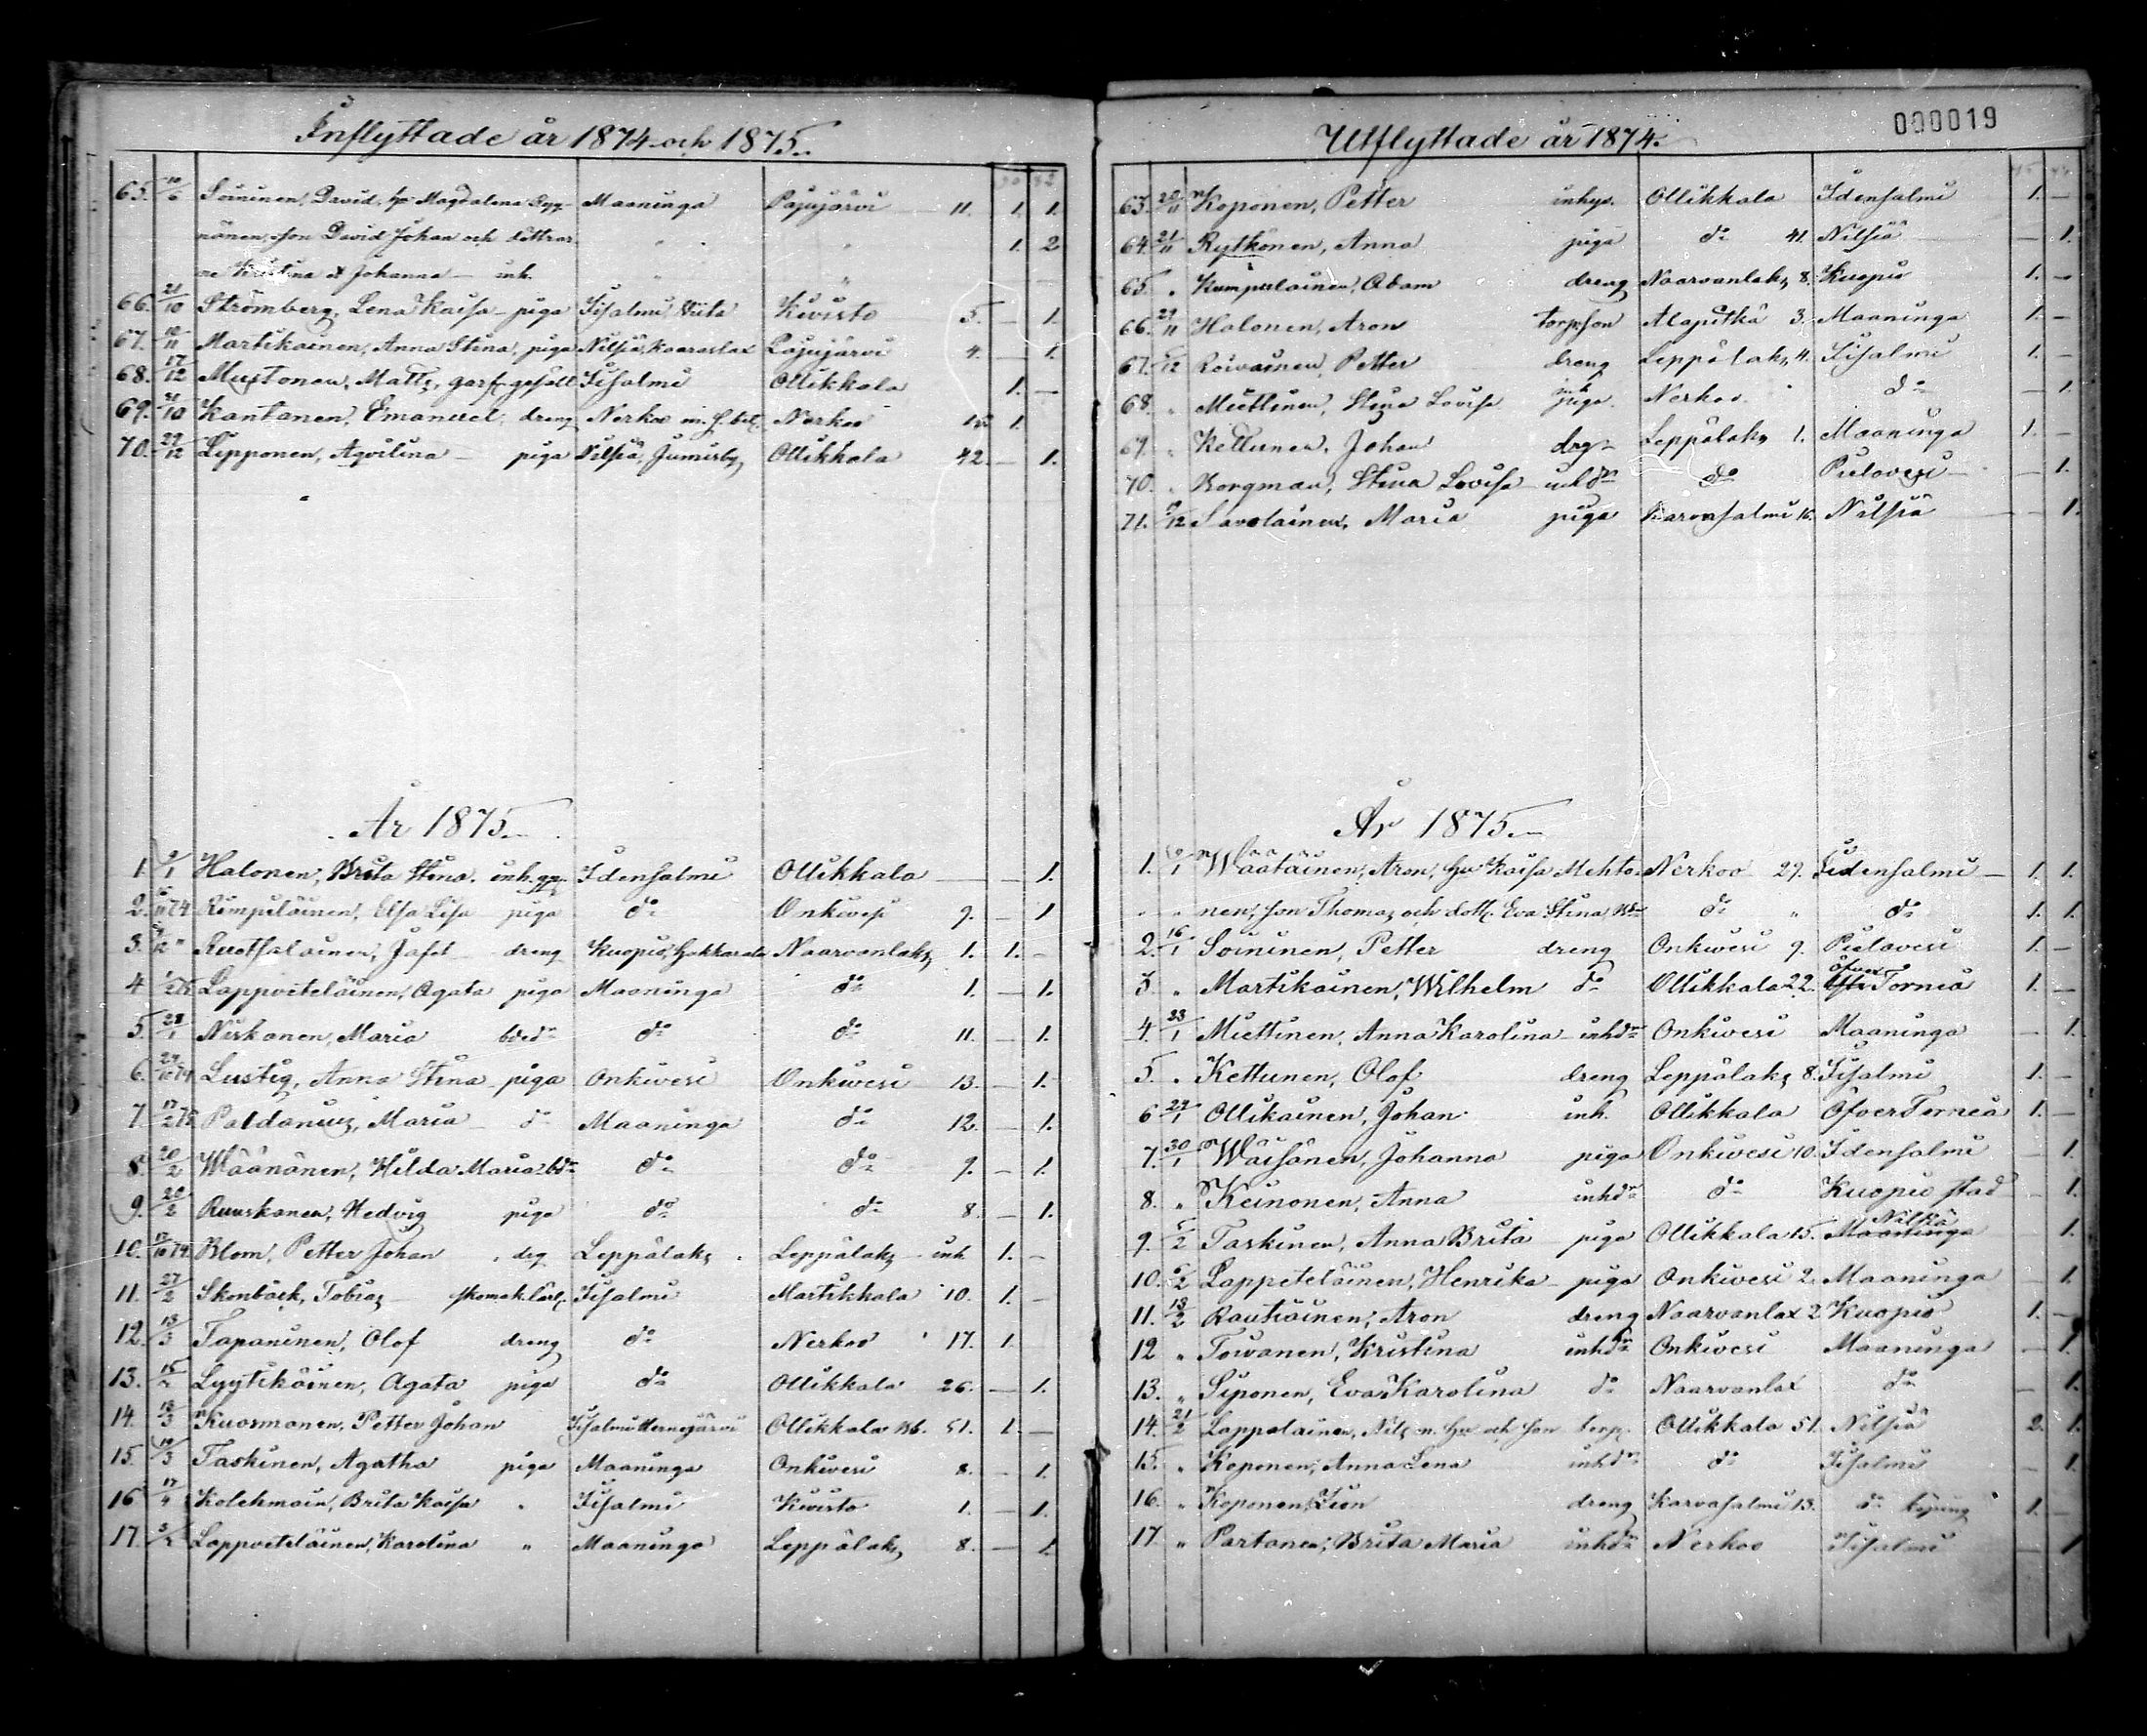 Inflyttade år 1874 och 1875.
65. 10/6 Soininen, David, h. Magdalena Maaninga Pajujärvi 11. 1. 1.
nänen, son David Johan och döttrar 1. 2
ne Kristina & Johanna inh.
66. 21/10 Strömberg, Lena Kaisa piga Iisalmi Kivisto 5. — 1.
67. 10/11 Martikainen, Anna Stina, piga Nilsiä, Kaaraslax Pajujärvi 4. — 1.
68. 17/12 Mustonen, Matts, garf. gesäll Iisalmi Ollikkala 1. —
69. 21/10 Kantanen, Emanuel, dreng Nerkoo Nerkoo 1.
70. 29/12 Lipponen, Aqvilina — piga Nilsiä, Ollikkala 42. — 1.
År 1875.
1. 9/1 Halonen, Brita Stina. inh. Idensalmi Ollikkala — 1.
2. Rimpiläinen, Elsa Lisa piga do Onkivesi 9. — 1
3. Ruotsalainen, Jafet dreng Kuopio, Naarvanlaks 1. 1. -
4 Lappveteläinen, Agata piga Maaninga do 1. — 1.
5. 28/1 Niskanen, Maria do do 11. — 1.
6. Lustig, Anna Stina piga Onkivesi Onkivesi 13. — 1.
7. Paldanius, Maria do Maaninga do 12. — 1.
8. 20/2 Wäänänen, Hilda Maria do do 9. — 1.
9. 20/2 Ruuskanen, Hedvig piga do do 8. — 1.
10. Blom, Petter Johan drg Leppälaks Leppälaks inh 1. -
11. 27/2 Skonbäck, Tobias skomak. lärl. Iisalmi Martikkala 10. 1. —
12. 13/3 Tapaninen, Olof dreng do Nerkoo 17. 1.
13. Lyytikäinen, Agata piga do Ollikkala 26. — 1.
14. 13/3 Kuosmanen, Petter Johan Iisalmi Hernejärvi Ollikkala 51. 1. —
15. 19/3 Taskinen, Agatha piga Maaninga Onkivesi 8. — 1.
16 17/4 Kolehmain, Brita Kaisa " Iisalmi Kivisto 1. — 1.
17. Lappveteläinen, Karolina " Maaninga Leppälaks 8. — 1.
Utflyttade år 1874.
000019
63. 20/11 Koponen, Petter inhys. Ollikkala Idensalmi 1. —
64. 21/11 Rytkönen, Anna piga do 41. Nilsiä — 1.
65. " Kumpulainen, Adam dreng Naarvanlaks 8. Kuopio 1. —
66. 29/11 Halonen, Aron torpson Alapitkä 3. Maaninga 1. —
67. Roivainen, Petter dreng Leppälaks 4. Iisalmi 1. —
68. " Miettinen, Stina Lovisa inh piga. Nerkoo do — 1.
69. " Kettunen, Johan drg Leppälaks 1. Maaninga 1. —
70. " Borgman, Stina Lovisa inhdr do Pielavesi — 1.
71. Savolainen, Maria piga Karvasalmi 16. Nilsiä — 1.
År 1875.
1. Wäätäinen, Aron, hu Kaisa Mehto- Nerkoo 29. Iidensalmi 1. 1.
" " nen, son Thomas och dott. Eva Stina do " do 1. 1.
2. 16/1 Soininen, Petter dreng Onkivesi 9. Pielavesi 1. —
3. " Martikainen, Wilhelm do Ollikkala 22. öfver Torneå 1. —
4. 23/1 Miettinen, Anna Karolina inhdr Onkivesi Maaninga — 1.
5. " Kettunen, Olof dreng Leppälaks 8. Iisalmi 1. —
6 29/1 Ollikainen, Johan inh. Ollikkala Öfver Torneå 1. —
7. 30/1 Wäisänen, Johanna piga Onkivesi 10. Idensalmi — 1.
8. " Keinonen, Anna inhdr do Kuopio stad — 1.
9. 5/2 Taskinen, Anna Brita piga Ollikkala 15. Maaninga Nilsiä — 1.
10. 6/2 Lappeteläinen, Henrika piga Onkivesi 2. Maaninga — 1.
11. 13/2 Rautiainen, Aron dreng Naarvanlax 2 Kuopio 1. —
12 " Toivanen, Kristina inhdr Onkivesi Maaninga — 1.
13. " Siponen, Eva Karolina do Naarvanlax do — 1.
14. 21/2 Lappalainen, Nils m. hu och son torp. Ollikkala 51. Nilsiä 2. 1.
15. " Koponen, Anna Lena inhdr do Iisalmi — 1.
16. " Koponen, Zion dreng Karvasalmi 13. do köping 1. —
17. " Partanen, Brita Maria inhdr Nerkoo Iisalmi — 1